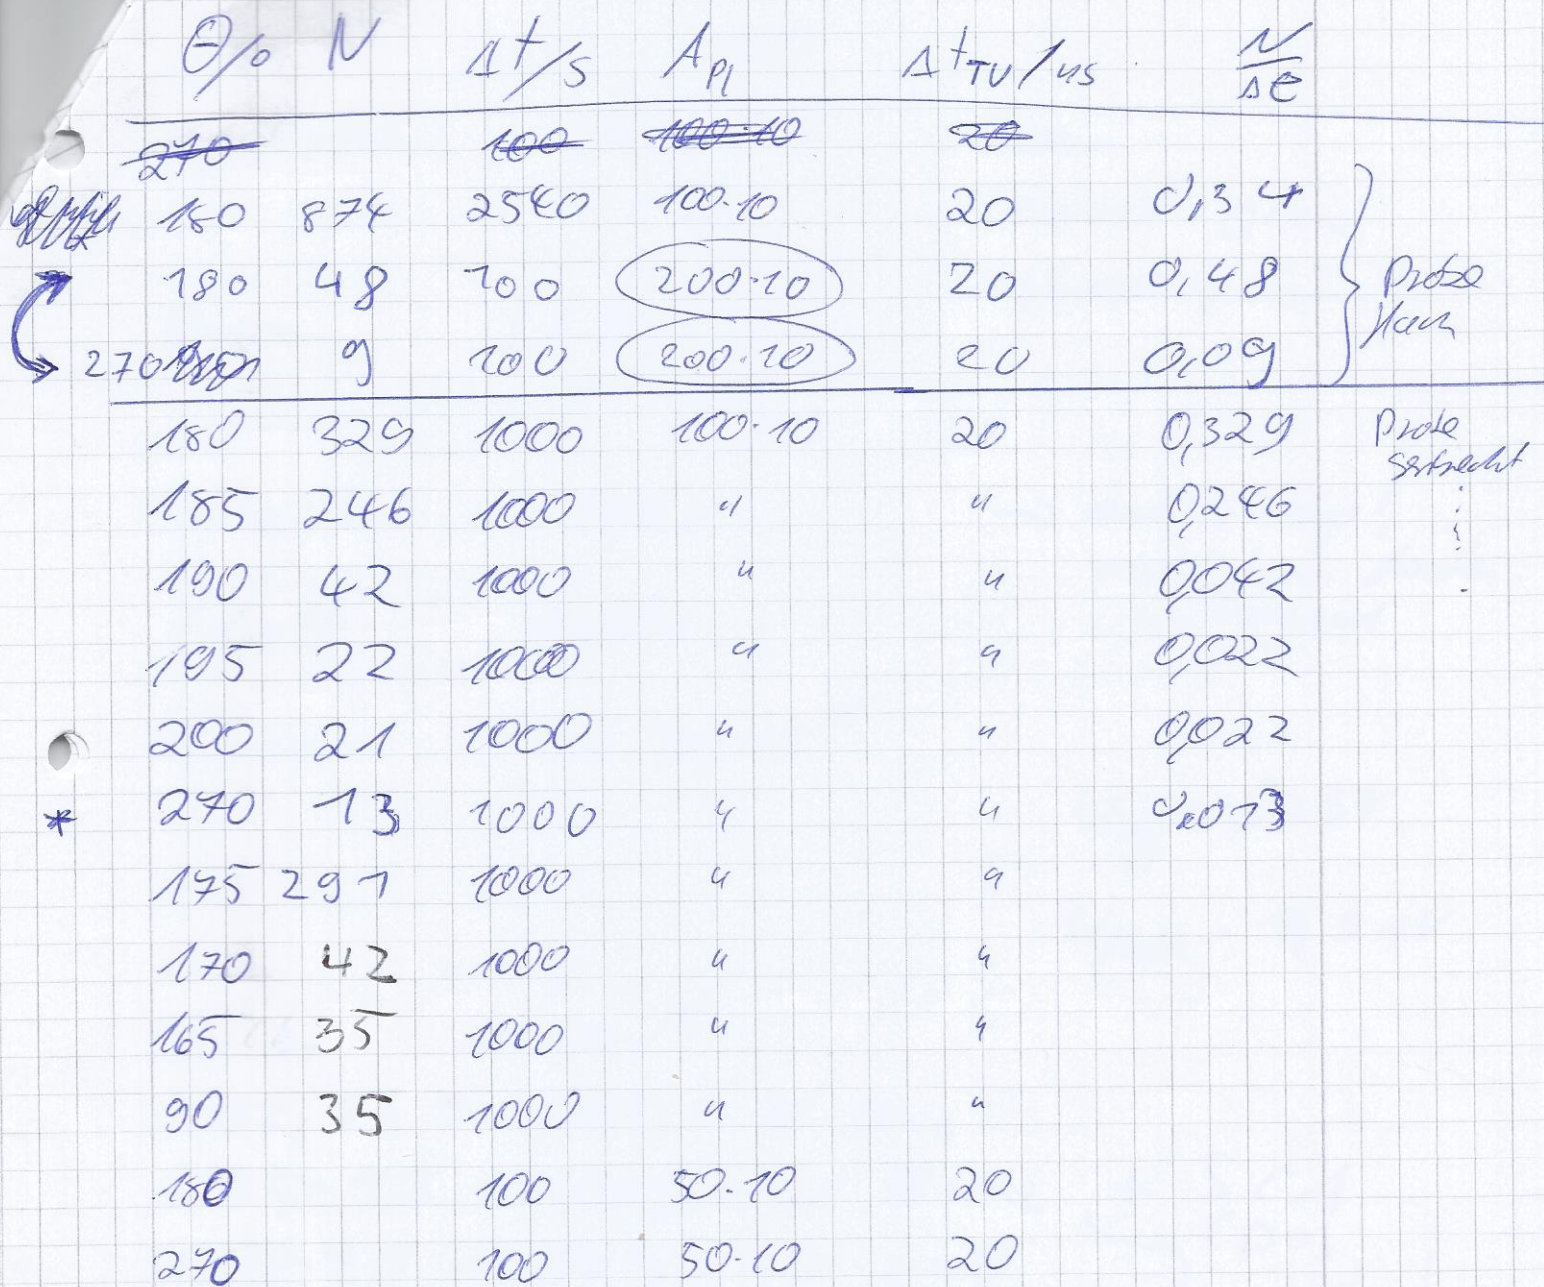 Θ/° N Δt/s A_Pl Δt_TU/ns N/Δt
270 100 100·10 20
180 874 2540 100·10 20 0,34
180 48 100 200·10 20 0,48 Probe
flach
270 9 100 200·10 20 0,09
180 329 1000 100·10 20 0,329 Probe
senkrecht
185 246 1000 " " 0,246
190 42 1000 " " 0,042
195 22 1000 " " 0,022
200 21 1000 " " 0,022
* 270 13 1000 " " 0,013
175 291 1000 " "
170 42 1000 " "
165 35 1000 " "
90 35 1000 " "
180 100 50·10 20
270 100 50·10 20